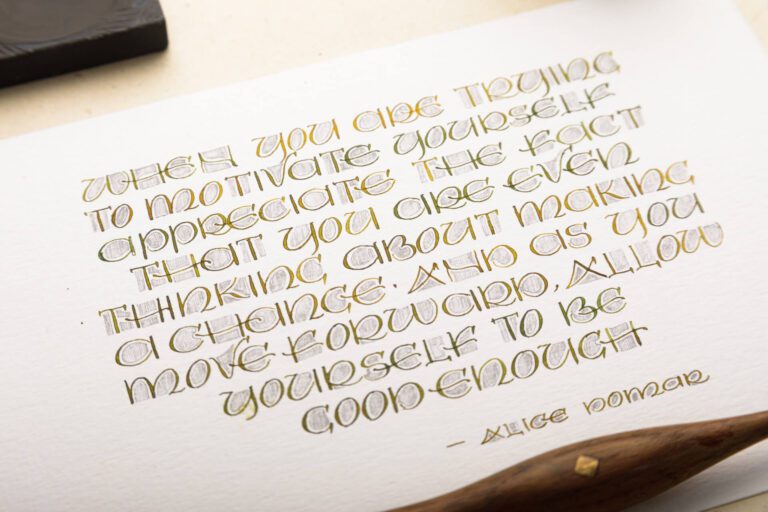 WHEN YOU ARE TRYING
TO MOTIVATE YOURSELF
APPRECIATE THE FACT
THAT YOU ARE EVEN
THINKING ABOUT MAKING
A CHANGE. AND AS YOU
MOVE FORWARD, ALLOW
YOURSELF TO BE
GOOD ENOUGH
- ALICE DOMAR